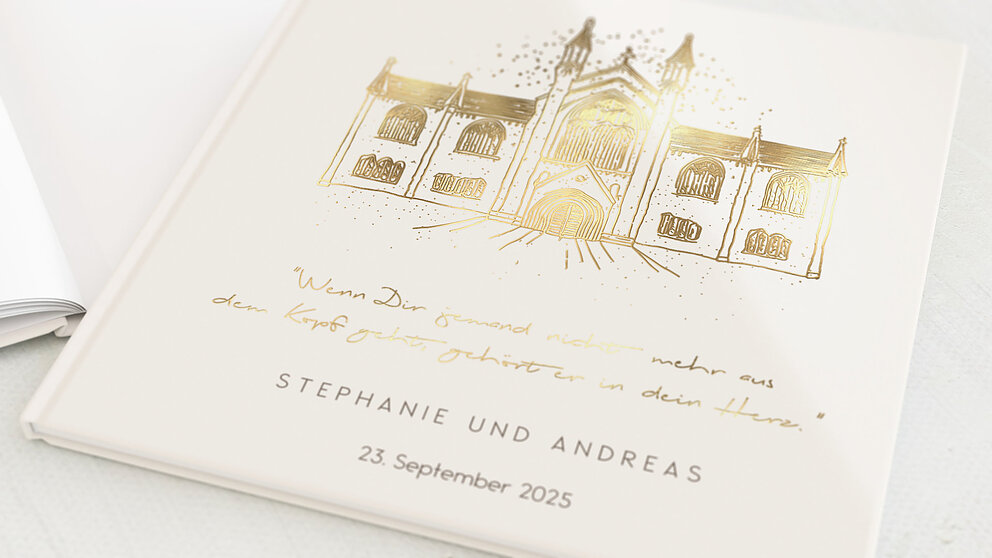 "Wenn Dir jemand nicht mehr aus
dem Kopf geht, gehört er in dein Herz."
STEPHANIE UND ANDREAS
23. September 2025